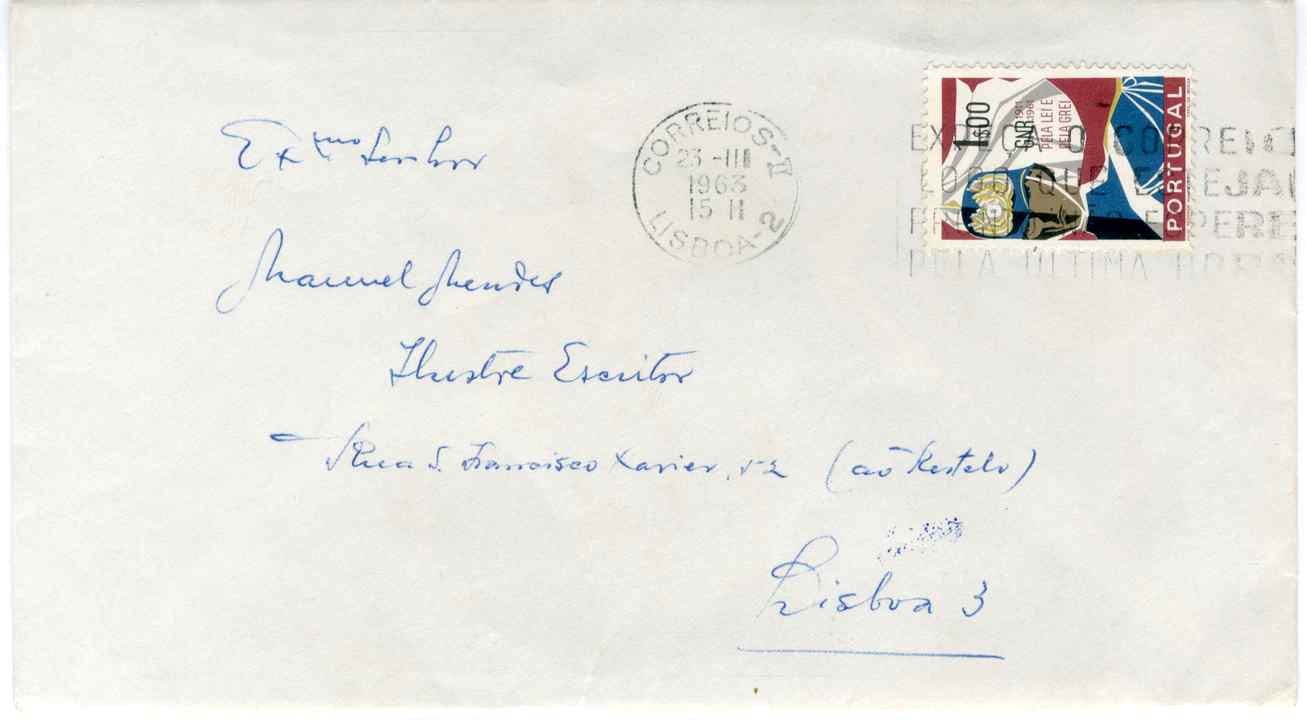 Ex.mo Senhor
Manuel Mendes
Ilustre Escritor
Rua S. Francisco Xavier, 52 (ao Restelo)
Lisboa 3
CORREIOS-II
23-III
1963
15 11
LISBOA-2
1$00
GNR 1911 1961
PELA LEI E
PELA GREI
PORTUGAL
EXPEÇA O CORREIO
LOGO QUE ESTEJA
NÃO ESPERE
PELA ÚLTIMA HORA